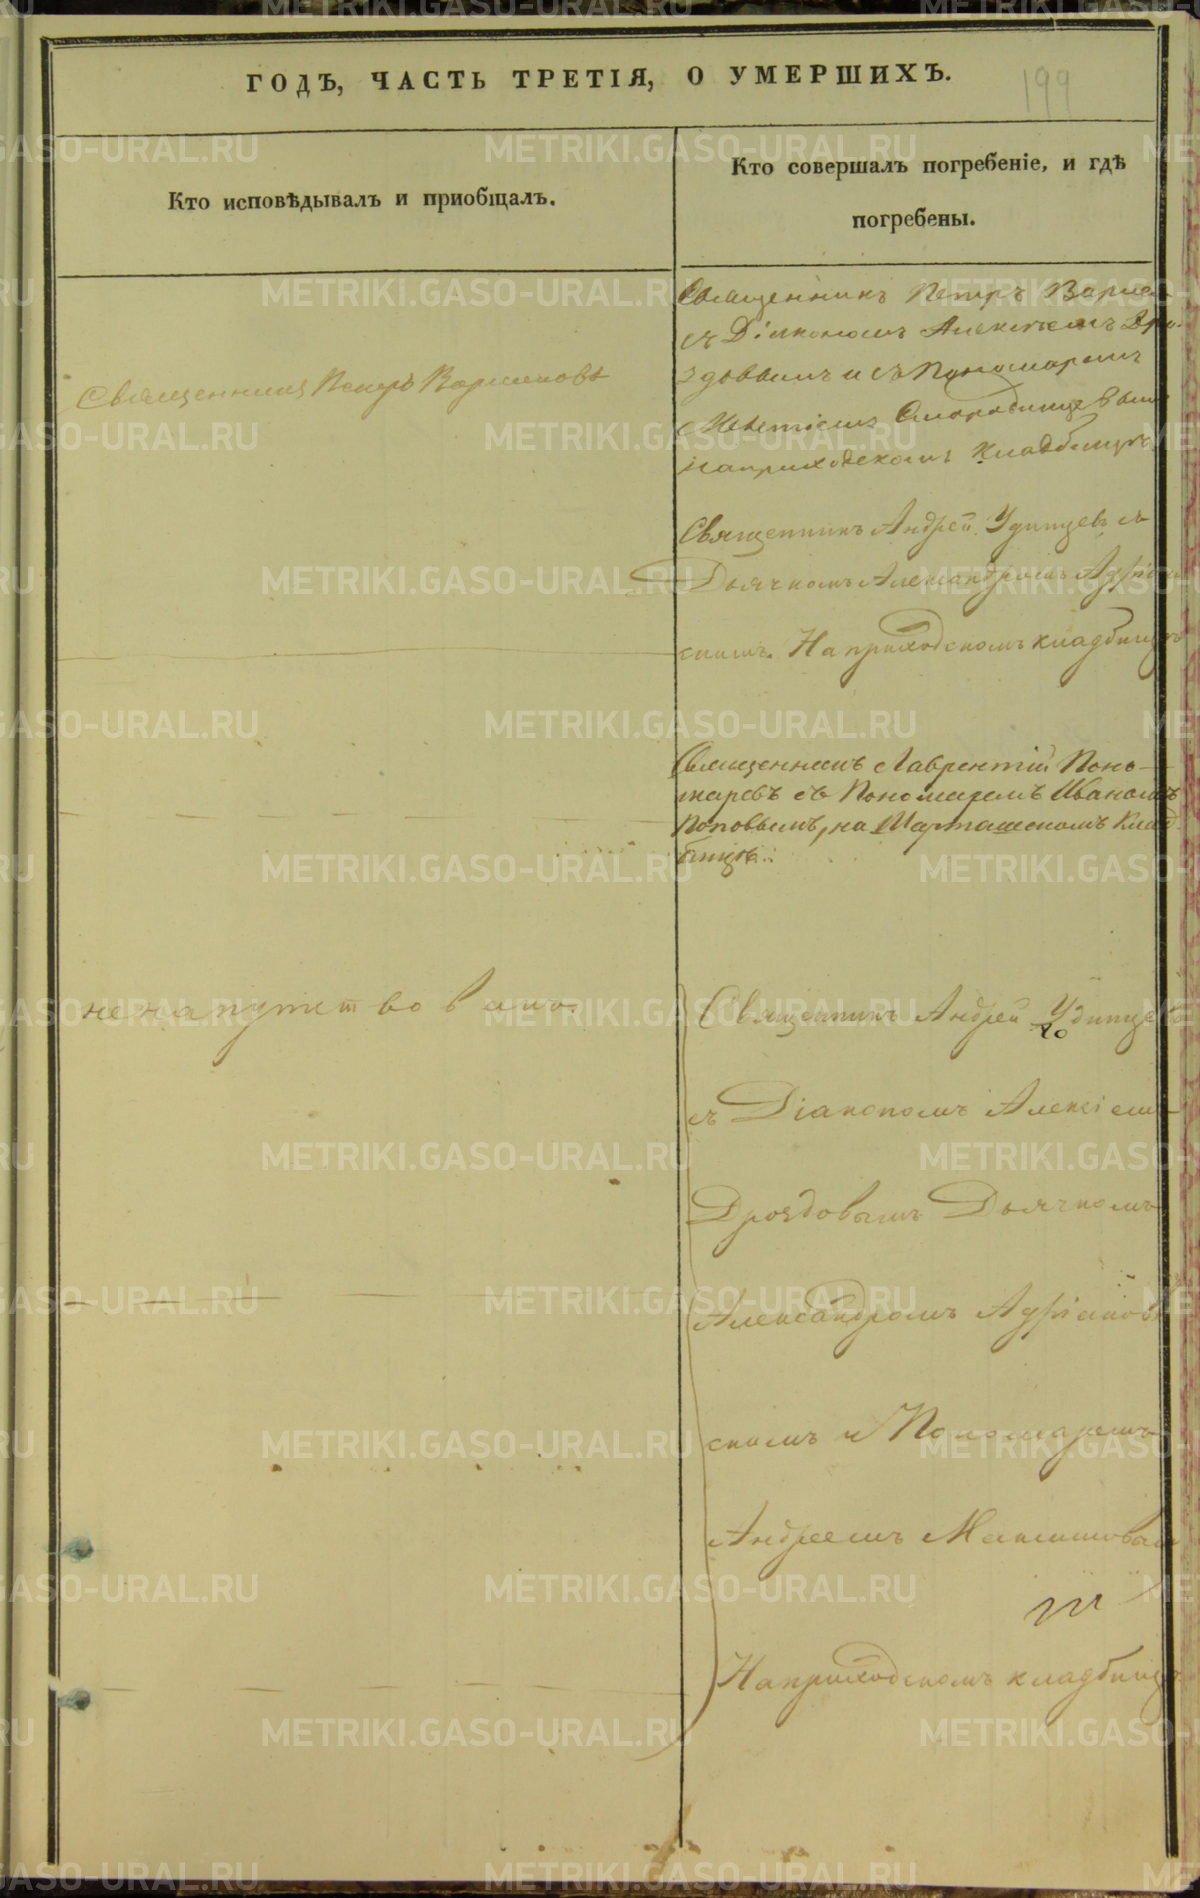 ГОДЪ, ЧАСТЬ ТРЕТІЯ, О УМЕРШИХЪ.
199
Кто исповѣдывалъ и приобщалъ.
Кто совершалъ погребеніе, и гдѣ
погребены.
Священникъ Петръ
съ Діякономъ Алексѣемъ Дро-
здовымъ и съ Пономаремъ
Священникъ Петръ
Смородинцевымъ
на приходскомъ кладбищѣ
Священникъ Андрей Удинцевъ съ
Дьячкомъ Александромъ Адріанов
скимъ. На приходскомъ кладбищѣ
Священникъ Лаврентій Поно-
маревъ съ Пономаремъ Иваномъ
Поповымъ, на Шарташскомъ Клад-
бищѣ.
не напутствованъ.
Священникъ Андрей Удинцевъ
съ Діакономъ Алексіемъ
Дроздовымъ Дьячкомъ
Александромъ Адріанов
скимъ и Пономаремъ
Андреемъ
На приходскомъ кладбищѣ
METRIKI.GASO-URAL.RU